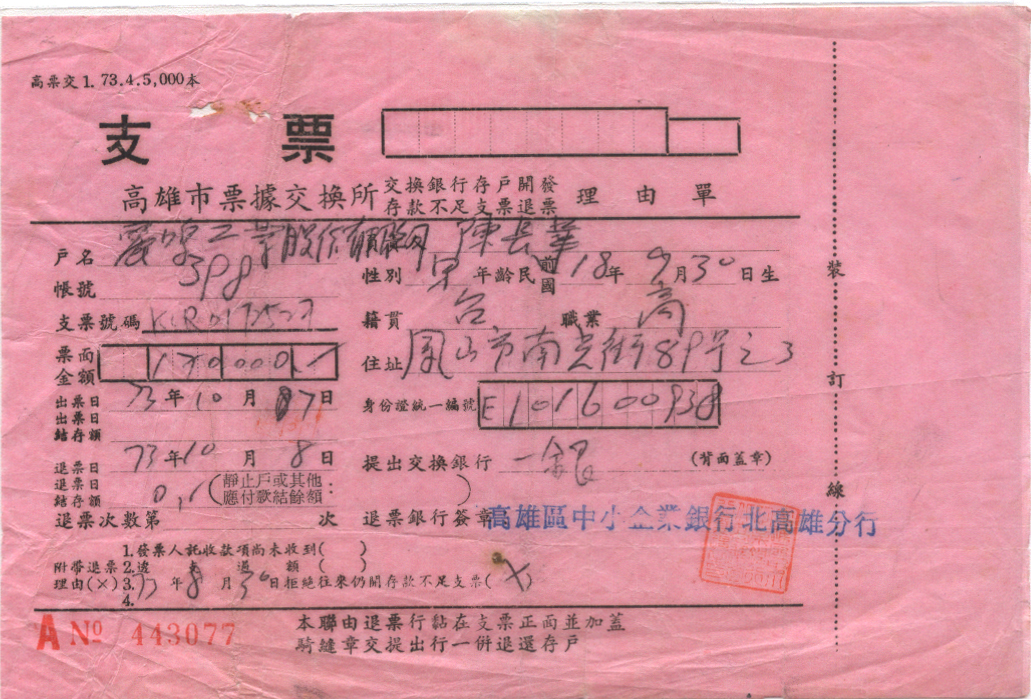 高票交1. 73.4.5,000本
支票
高雄市票據交換所 交換銀行存戶開發存款不足支票退票 理由單
戶名 工業股份有限公司 陳長華
帳號 398
性別 男 年齡民前國 18年 9月30日生
支票號碼
籍貫 台 職業 商
票面金額 170000.-
住址 鳳山市南光街89号之3
出票日 73年10月07日
出票日結存額
身份證統一編號 E101600938
退票日 73年10月8日
提出交換銀行 一銀 (背面蓋章)
退票日結存額 0.- (靜止戶或其他應付款結餘額:)
退票次數第 次
退票銀行簽章 高雄區中小企業銀行北高雄分行
附帶退票理由(×)
1.發票人託收款項尚未收到( )
2.透支過額( )
3.73年8月30日拒絕往來仍開存款不足支票(×)
4.
A Nº 443077
本聯由退票行黏在支票正面並加蓋
騎縫章交提出行一併退還存戶
裝訂線